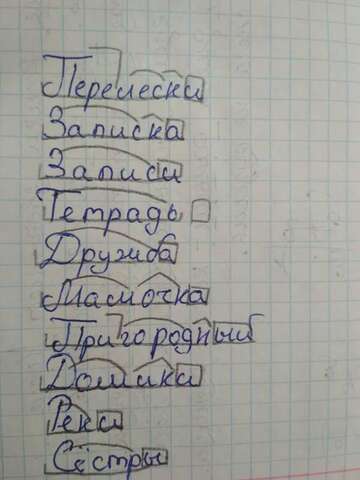 Перелески
Записка
Записи
Тетрадь
Дружба
Мамочка
Пригородный
Домики
Река
Сёстры